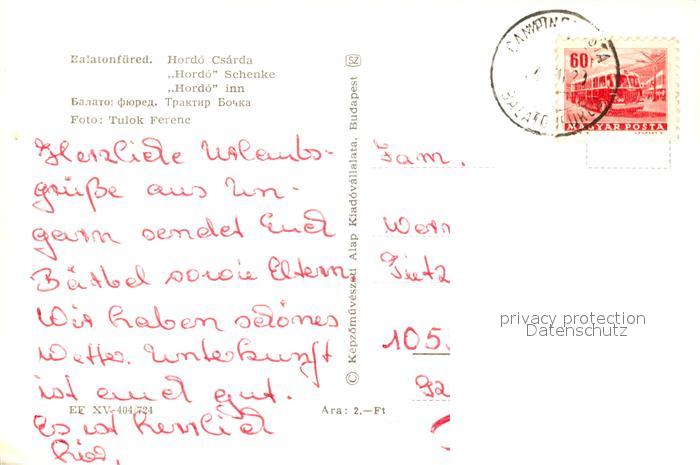 Balatonfüred. Hordó Csárda
„Hordó” Schenke
„Hordó” inn
Балатонфюред. Трактир Бочка
Foto: Tulok Ferenc
Herzliche Urlaubs-
grüße aus Un-
garn sendet Euch
Bärbel sowie Eltern
Wir haben schönes
Wetter. Unterkunft
ist auch gut.
Es ist herrlich
hier.
EF XV-404/724
Ara: 2.—Ft
© Képzőművészeti Alap Kiadóvállalata, Budapest
SZ
CAMPING
60f
MAGYAR POSTA
Fam.
Wern
Tietz
105
privacy protection
Datenschutz